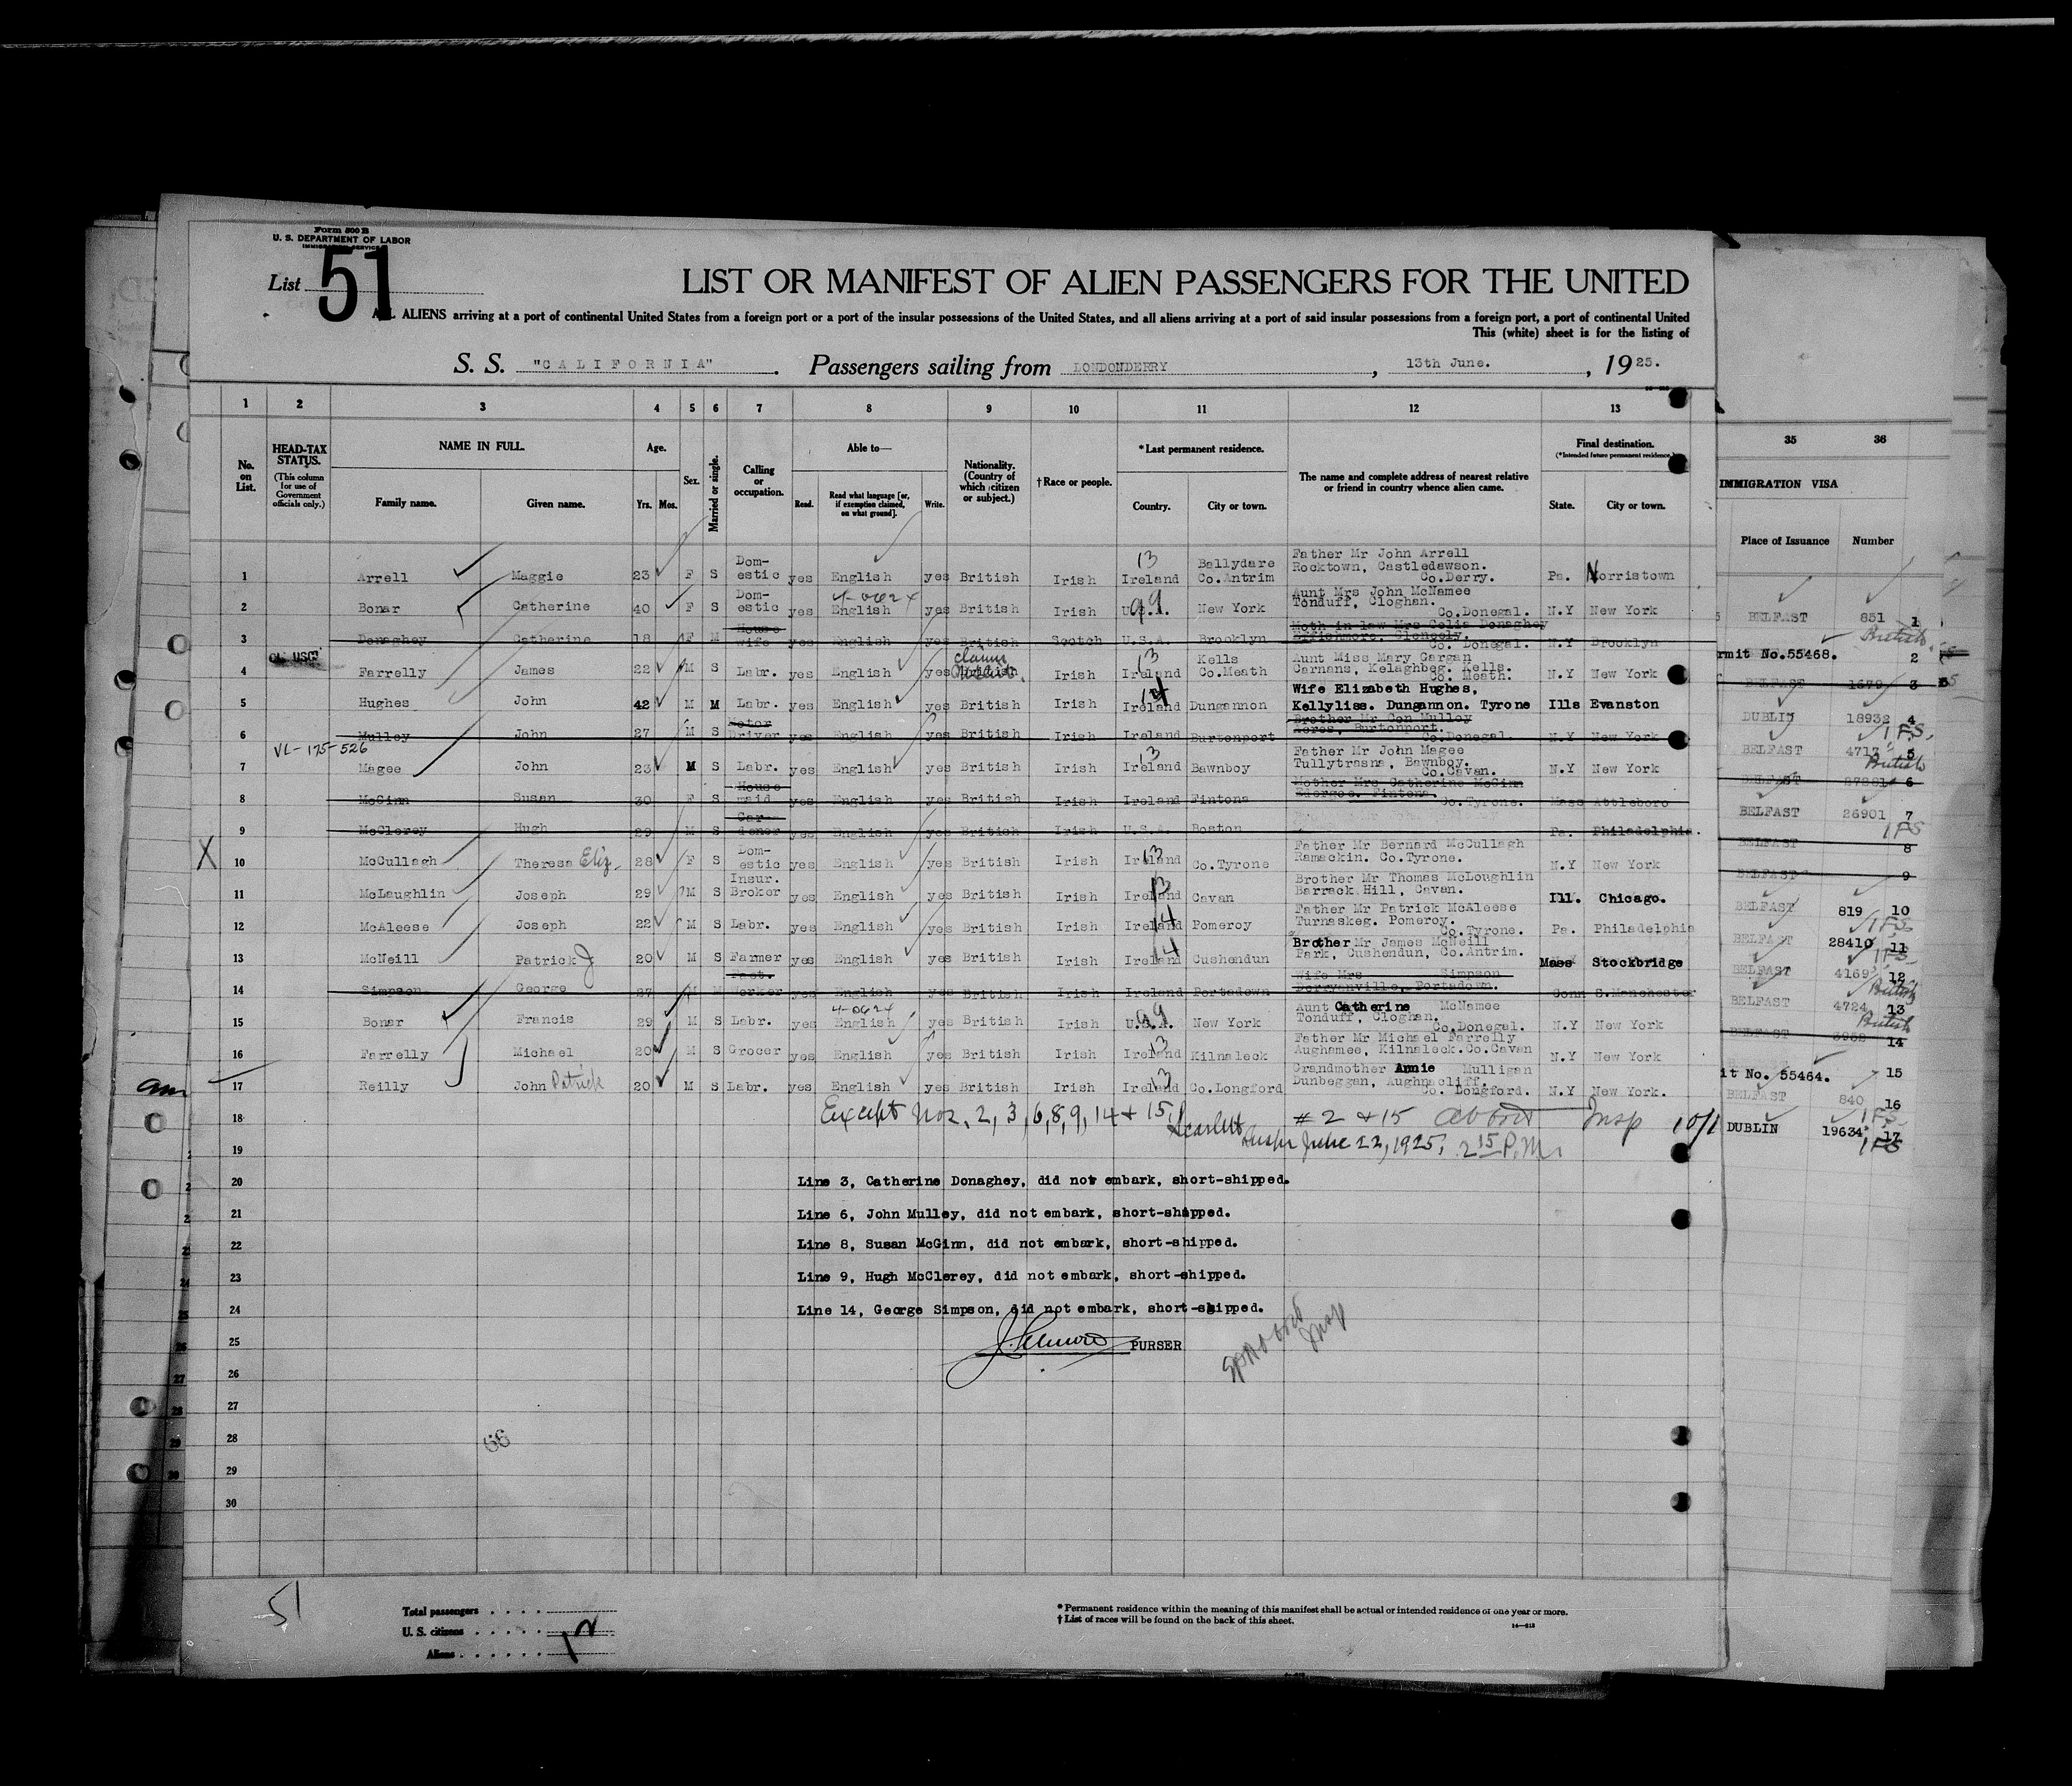 Form 500 B
U. S. DEPARTMENT OF LABOR
IMMIGRATION SERVICE
List 51
LIST OR MANIFEST OF ALIEN PASSENGERS FOR THE UNITED
ALL ALIENS arriving at a port of continental United States from a foreign port or a port of the insular possessions of the United States, and all aliens arriving at a port of said insular possessions from a foreign port, a port of continental United
This (white) sheet is for the listing of
S. S. "CALIFORNIA". Passengers sailing from LONDONDERRY, 13th June., 1925.
1 2 3 4 5 6 7 8 9 10 11 12 13
No. on List.
HEAD-TAX STATUS. (This column for use of Government officials only.)
NAME IN FULL. Family name. Given name.
Age. Yrs. Mos.
Sex.
Married or single.
Calling or occupation.
Able to— Read. Read what language [or, if exemption claimed, on what ground]. Write.
Nationality. (Country of which citizen or subject.)
† Race or people.
* Last permanent residence. Country. City or town.
The name and complete address of nearest relative or friend in country whence alien came.
Final destination. (*Intended future permanent residence.) State. City or town.
35 36
IMMIGRATION VISA
Place of Issuance Number
1 Arrell Maggie 23 F S Domestic yes English yes British Irish 13 Ireland Ballydare Co.Antrim Father Mr John Arrell Rocktown, Castledawson. Co.Derry. Pa. Norristown
2 Bonar Catherine 40 F S Domestic yes English yes British Irish U.S.A. 99 New York Aunt Mrs John McNamee Tonduff, Cloghan. Co.Donegal. N.Y New York
3 Donaghey Catherine 18 F M House wife yes English yes British Scotch U.S.A. Brooklyn Moth-in-law Mrs Celia Donaghey Glencely. Co. Donegal. N.Y Brooklyn
4 Farrelly James 22 M S Labr. yes English yes British Irish 13 Ireland Kells Co.Meath Aunt Miss Mary Gargan Carnans, Kelaghbeg. Kells. Co. Meath. N.Y New York
5 Hughes John 42 M M Labr. yes English yes British Irish 14 Ireland Dungannon Wife Elizabeth Hughes, Kellyliss. Dungannon. Tyrone Ills Evanston
6 Mulley John 27 M S Motor Driver yes English yes British Irish Ireland Burtonport Brother Mr Con Mulley Acres, Burtonport. Co.Donegal. N.Y New York
VL-175-526
7 Magee John 23 M S Labr. yes English yes British Irish 13 Ireland Bawnboy Father Mr John Magee Tullytrasna, Bawnboy. Co.Cavan. N.Y New York
8 McGinn Susan 30 F S House maid yes English yes British Irish Ireland Fintona Mother Mrs Catherine McGinn Edergoe. Fintona. Co.Tyrone. Mass Attleboro
9 McClerey Hugh 29 M S Gardener yes English yes British Irish U.S.A. Boston Pa. Philadelphia.
X 10 McCullagh Theresa Eliz. 28 F S Domestic yes English yes British Irish 13 Ireland Co.Tyrone Father Mr Bernard McCullagh Ramackin. Co.Tyrone. N.Y New York
11 McLaughlin Joseph 29 M S Insur. Broker yes English yes British Irish 13 Ireland Cavan Brother Mr Thomas McLoughlin Barrack Hill, Cavan. Ill. Chicago.
12 McAleese Joseph 22 M S Labr. yes English yes British Irish 14 Ireland Pomeroy Father Mr Patrick McAleese Turnaskeg. Pomeroy. Co.Tyrone. Pa. Philadelphia
13 McNeill Patrick J 20 M S Farmer yes English yes British Irish 14 Ireland Cushendun Brother Mr James McNeill Park, Cushendun, Co.Antrim. Mass Stockbridge
14 Simpson George 27 M M Fact. Worker yes English yes British Irish Ireland Portadown Wife Mrs Simpson Derryanville, Portadown. Conn S.Manchester
15 Bonar Francis 29 M S Labr. yes English yes British Irish U.S.A. 99 New York Aunt Catherine McNamee Tonduff, Cloghan. Co.Donegal. N.Y New York
16 Farrelly Michael 20 M S Grocer yes English yes British Irish 13 Ireland Kilnaleck Father Mr Michael Farrelly Aughamee, Kilnaleck.Co.Cavan N.Y New York
17 Reilly John Patrick 20 M S Labr. yes English yes British Irish 13 Ireland Co.Longford Grandmother Annie Mulligan Dunbeggan, Aughnacliff. Co. Longford. N.Y New York.
18 Except Nos. 2, 3, 6, 8, 9, 14 + 15, # 2 + 15 Insp
19 June 22, 1925, 2 15 P.M.
20 Line 3, Catherine Donaghey, did not embark, short-shipped.
21 Line 6, John Mulley, did not embark, short-shipped.
22 Line 8, Susan McGinn, did not embark, short-shipped.
23 Line 9, Hugh McClerey, did not embark, short-shipped.
24 Line 14, George Simpson, did not embark, short-shipped.
25 PURSER
26
27
28
29
30
BELFAST 851 1
rmit No.55468. 2
BELFAST 1679 3
DUBLIN 18932 4
BELFAST 4717 5
BELFAST 6
BELFAST 26901 7
BELFAST 8
BELFAST 9
BELFAST 819 10
BELFAST 28410 11
BELFAST 4169 12
BELFAST 4724 13
BELFAST 14
it No. 55464. 15
BELFAST 840 16
DUBLIN 19634 17
51
Total passengers
U. S. citizens
Aliens 12
* Permanent residence within the meaning of this manifest shall be actual or intended residence of one year or more.
† List of races will be found on the back of this sheet.